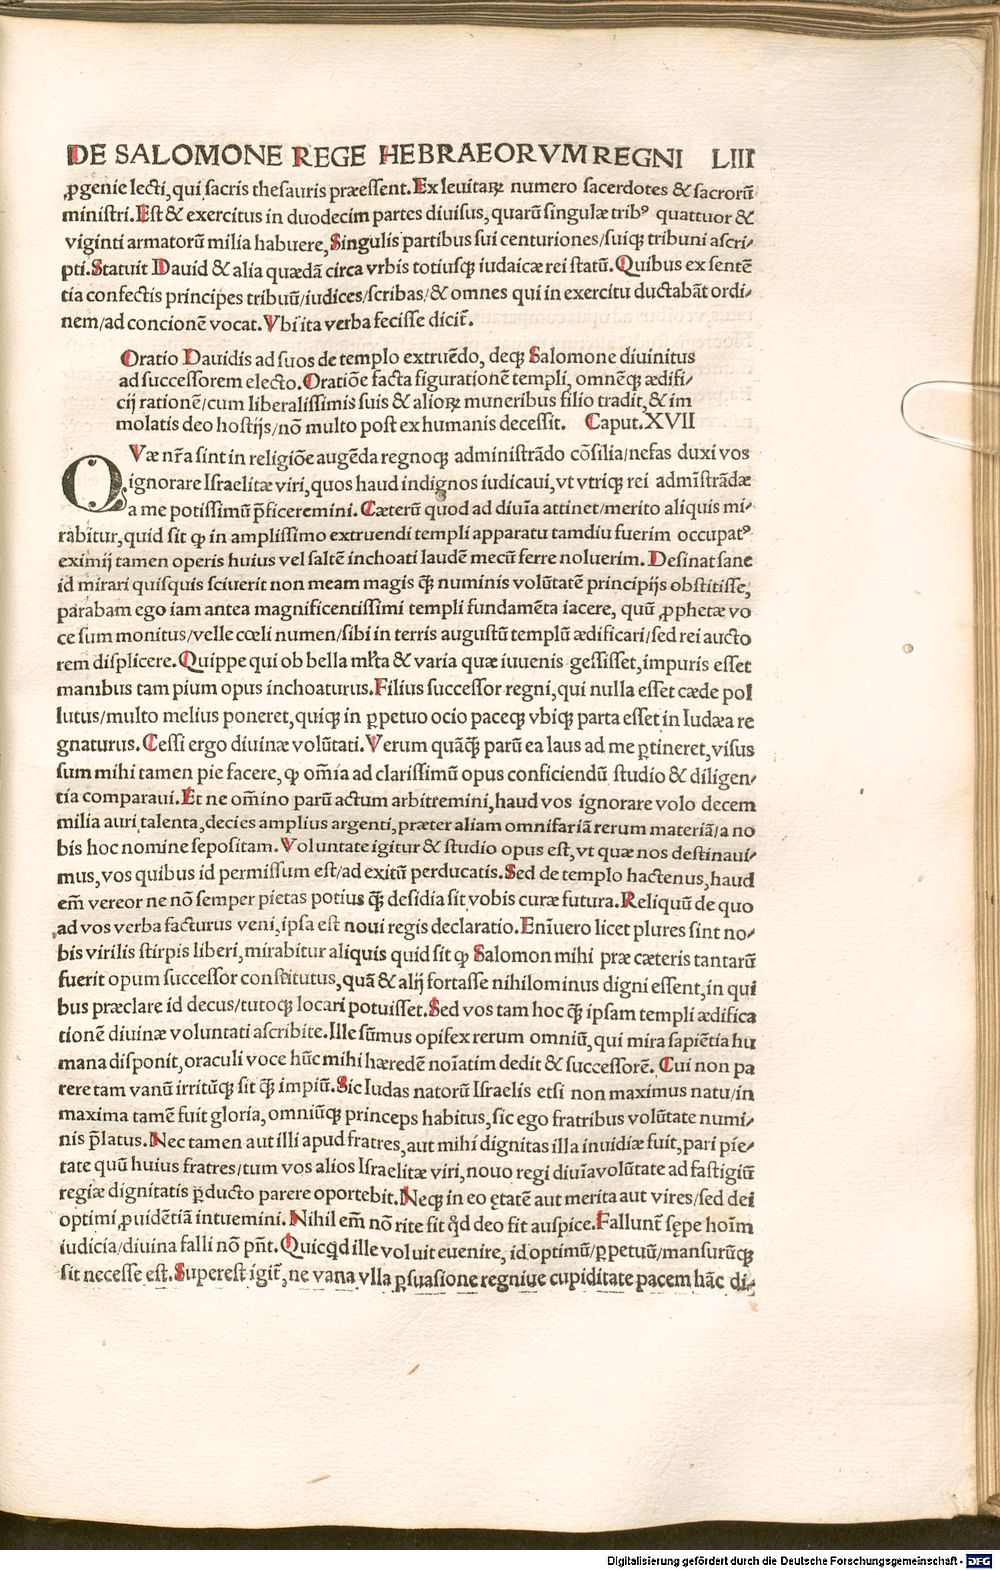 DE SALOMONE REGE HEBRAEORVM REGNI LIII
ꝓgenie lecti, qui sacris thesauris præessent. Ex leuitaꝝ numero sacerdotes & sacrorū
ministri. Est & exercitus in duodecim partes diuisus, quarū singulæ tribꝰ quattuor &
viginti armatorū milia habuere, Singulis partibus sui centuriones/suiqꝫ tribuni ascri⸗
pti. Statuit Dauid & alia quædā circa vrbis totiusqꝫ iudaicæ rei statū. Quibus ex sentē
tia confectis principes tribuū/iudices/scribas/& omnes qui in exercitu ductabāt ordi⸗
nem/ad concionē vocat. Vbi ita verba fecisse dicit̄.
Oratio Dauidis ad suos de templo extruēdo, deqꝫ Salomone diuinitus
ad successorem electo. Oratiōe facta figurationē templi, omnēqꝫ ædifi⸗
cij rationē/cum liberalissimis suis & alioꝝ muneribus filio tradit, & im
molatis deo hostijs/nō multo post ex humanis decessit. Caput. XVII
QVæ nr̄a sint in religiōe augēda regnoqꝫ administrādo cōsilia/nefas duxi vos
ignorare Israelitæ viri, quos haud indignos iudicaui, vt vtriqꝫ rei admīstrādæ
a me potissimū p̄ficeremini. Cæterū quod ad diuīa attinet/merito aliquis mi⸗
rabitur, quid sit ꝙ in amplissimo extruendi templi apparatu tamdiu fuerim occupatꝰ
eximij tamen operis huius vel saltē inchoati laudē mecū ferre noluerim. Desinat sane
id mirari quisquis sciuerit non meam magis q̄ꝫ numinis volūtatē principijs obstitisse,
parabam ego iam antea magnificentissimi templi fundamēta iacere, quū ꝓphetæ vo
ce sum monitus/velle cœli numen/sibi in terris augustū templū ædificari/sed rei aucto
rem displicere. Quippe qui ob bella ml̄ta & varia quæ iuuenis gessisset, impuris esset
manibus tam pium opus inchoaturus. Filius successor regni, qui nulla esset cæde pol
lutus/multo melius poneret, quiqꝫ in ꝑpetuo ocio paceqꝫ vbiqꝫ parta esset in Iudæa re
gnaturus. Cessi ergo diuinæ volūtati. Verum quāq̄ꝫ parū ea laus ad me ꝑtineret, visus
sum mihi tamen pie facere, ꝙ om̄ia ad clarissimū opus conficiendū studio & diligen⸗
tia comparaui. Et ne om̄ino parū actum arbitremini, haud vos ignorare volo decem
milia auri talenta, decies amplius argenti, præter aliam omnifariā rerum materiā/a no
bis hoc nomine sepositam. Voluntate igitur & studio opus est, vt quæ nos destinaui⸗
mus, vos quibus id permissum est/ad exitū perducatis. Sed de templo hactenus, haud
em̄ vereor ne nō semper pietas potius q̄ꝫ desidia sit vobis curæ futura. Reliquū de quo
ad vos verba facturus veni, ipsa est noui regis declaratio. Enīuero licet plures sint no⸗
bis virilis stirpis liberi, mirabitur aliquis quid sit ꝙ Salomon mihi præ cæteris tantarū
fuerit opum successor constitutus, quā & alij fortasse nihilominus digni essent, in qui
bus præclare id decus/tutoqꝫ locari potuisset. Sed vos tam hoc q̄ꝫ ipsam templi ædifica
tionē diuinæ voluntati ascribite. Ille sūmus opifex rerum omniū, qui mira sapiētia hu
mana disponit, oraculi voce hūc mihi hæredē noīatim dedit & successorē. Cui non pa
rere tam vanū irritūqꝫ sit q̄ꝫ impiū. Sic Iudas natorū Israelis etsi non maximus natu/in
maxima tamē fuit gloria, omniūqꝫ princeps habitus, sic ego fratribus volūtate numi⸗
nis p̄latus. Nec tamen aut illi apud fratres, aut mihi dignitas illa inuidiæ fuit, pari pie⸗
tate quū huius fratres/tum vos alios Israelitæ viri, nouo regi diuīa volūtate ad fastigiū
regiæ dignitatis ꝑducto parere oportebit. Neqꝫ in eo ętatē aut merita aut vires/sed dei
optimi ꝓuidētiā intuemini. Nihil em̄ nō rite fit qd̄ deo fit auspice. Fallunt̄ sępe hoīm
iudicia/diuina falli nō pn̄t. Quicqd̄ ille voluit euenire, id optimū/ꝑpetuū/mansurūqꝫ
sit necesse est. Superest igit̄, ne vana vlla ꝑsuasione regniue cupiditate pacem hāc di⸗
Digitalisierung gefördert durch die Deutsche Forschungsgemeinschaft - DFG